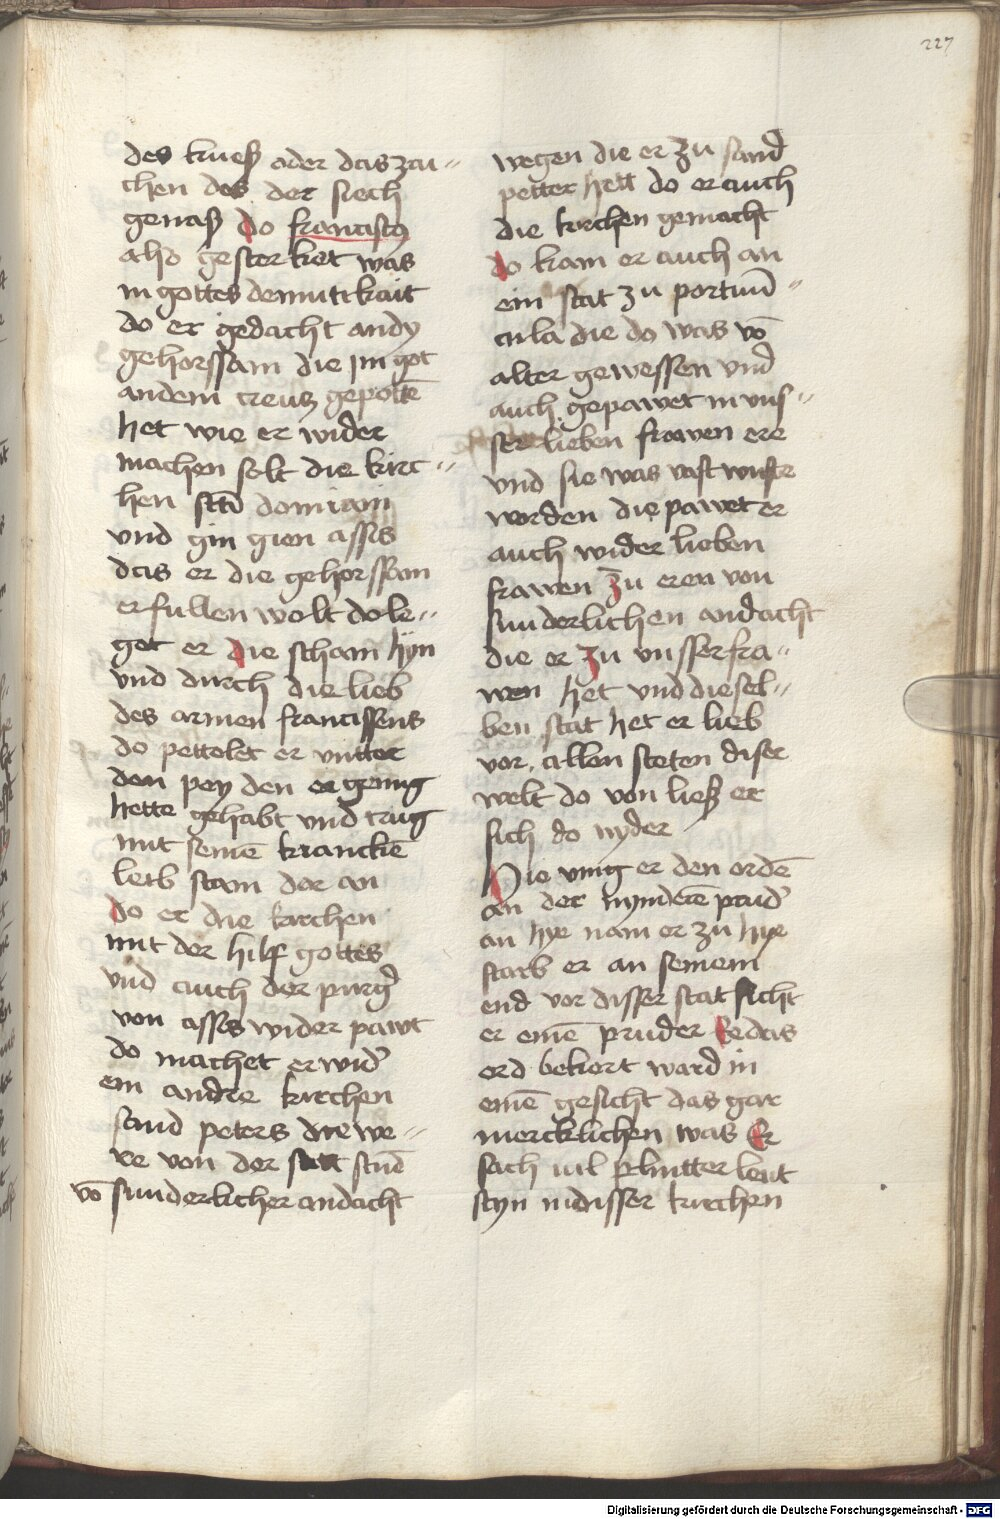 227
des kueß oder das zai-
chen des der siech
genaß do franciscus
also gesterket was
in gottes demutikait
do er gedacht an dy
gehorssam die im got
an dem creutz gepottē
het wie er wider
machen solt die kirc-
hen sctī domiani
vnd gin gien assis
das er die gehorssam
erfullen wolt do le-
get er die scham hyn
vnd durch die lieb
des armen francissens
do pettelet er vntter
den pey den er genug
hette gehabt vnd trug
mit seinē kranckē
leib stain dar an
do er die kirchen
mit der hilf gottes
vnd auch der purger
von assis wider pawt
do machet er wider
ein andre kirchen
sand peters die we-
re von der stat stūd
vō sunderlicher andacht
wegen die er zu sand
petter hett do er auch
die kirchen gemacht
do kam er auch an
ein stat zu portiun-
cula die do was vō
alter gewessen vnd
auch gepawet in vns-
ser lieben frawen ere
vnd sie was vast wuste
worden die pawet er
auch wider lieben
frawen zu eren von
sunderlichen andacht
die er zu vnsser fra-
wen het vnd diesel-
ben stat het er lieb
vor allen steten diser
welt do von ließ er
sich do nyder
Hie vnig er den ordē
an der mynderē prud
an hye nam er zu hye
starb er an seinem
end vor disser stat sicht
er einē pruder Ee das
ord bekert ward in
einē gesicht das gar
mercklichen was Er
sach vil plintter leut
styn in disser kirchen
Digitalisierung gefördert durch die Deutsche Forschungsgemeinschaft - DFG